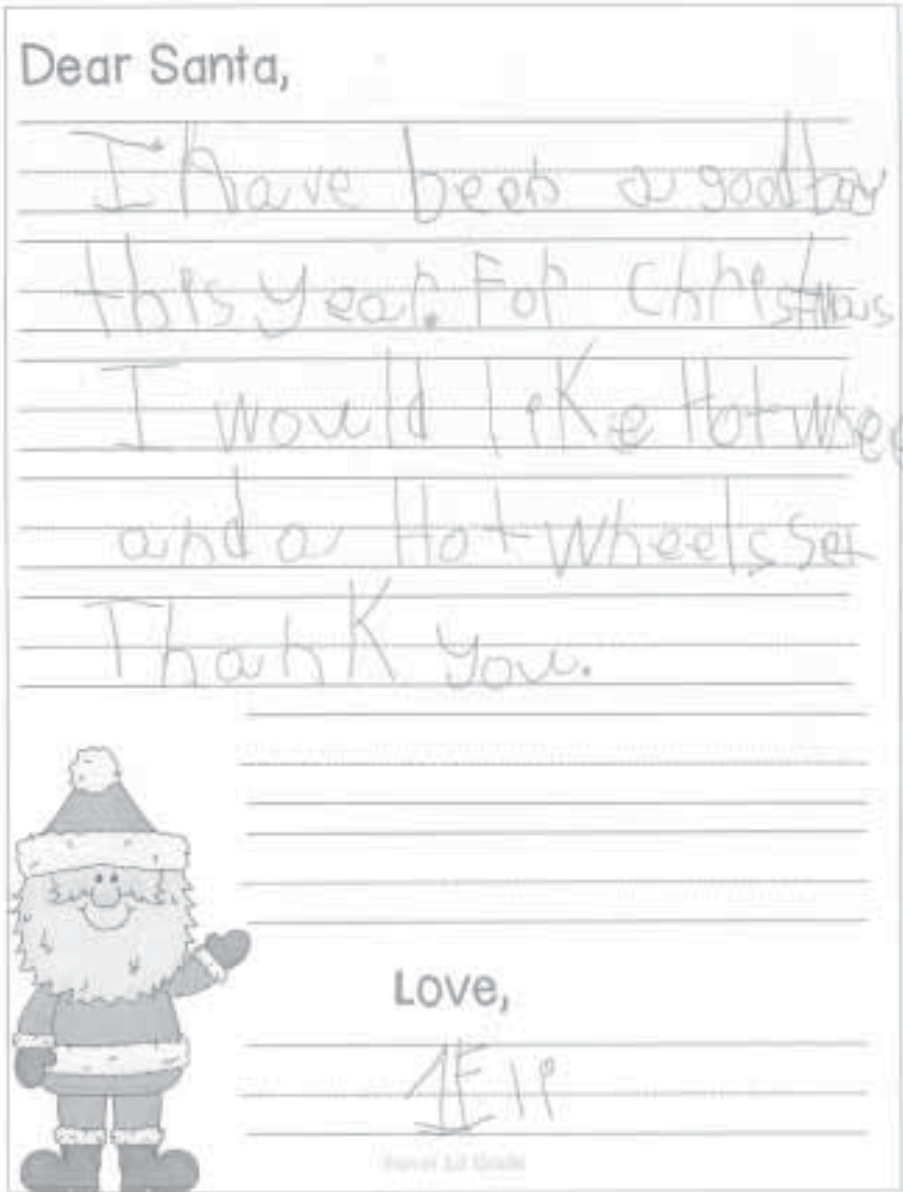 Dear Santa,
I have been a good boy
this year. For Christmas
I would like Hot whee
and a Hot Wheels Set
Thank you.
Love,
Eli